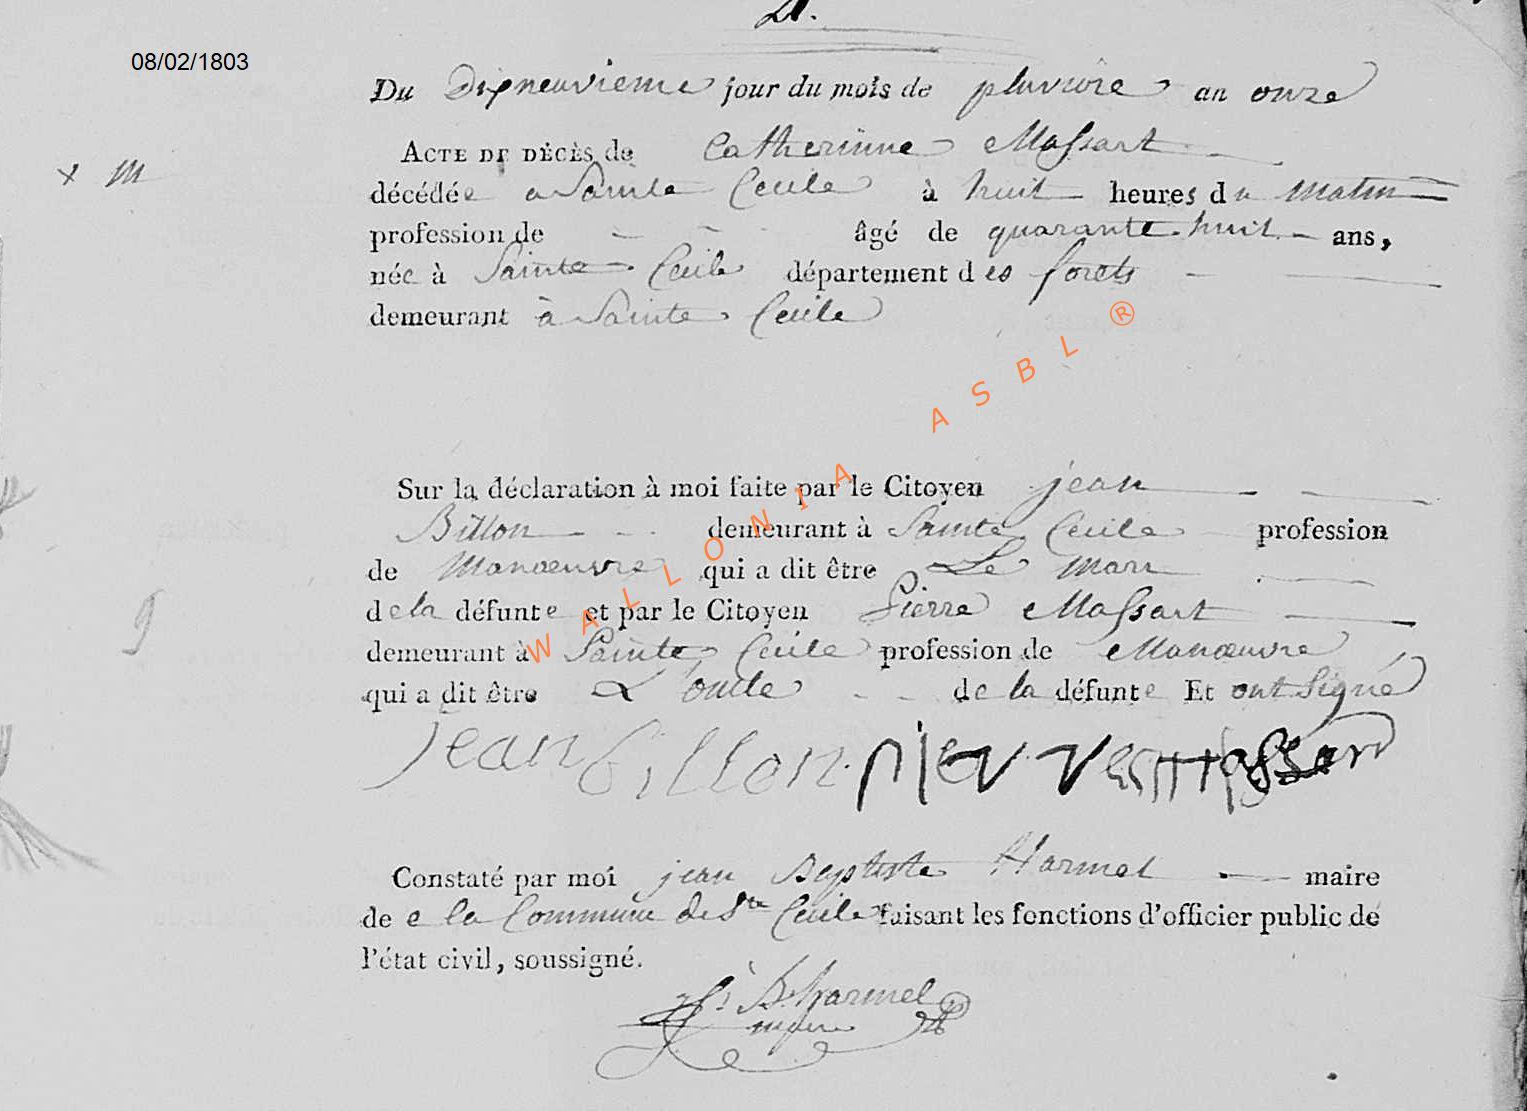 21.
08/02/1803
Du Dixneuvieme jour du mois de pluviôse an onze
ACTE DE DÉCÈS de Catherinne Massart
x M
décédée a Sainte Cecile à huit heures du Matin
profession de - - âgé de quarante huit ans,
née à Sainte Cecile département des forets
demeurant à Sainte Cecile
Sur la déclaration à moi faite par le Citoyen jean
Billon demeurant à Sainte Cecile profession
de Manœuvre qui a dit être Le Mari
de la défunte et par le Citoyen Pierre Massart
demeurant à Sainte Cecile profession de Manœuvre
qui a dit être L'oncle de la défunte Et ont Signé
jean billon pierre massard
Constaté par moi jean Baptiste Harmel maire
de e la Commune de Ste Cecile faisant les fonctions d'officier public de
l'état civil, soussigné.
J. B. harmel
maire
WALLONIA ASBL ®